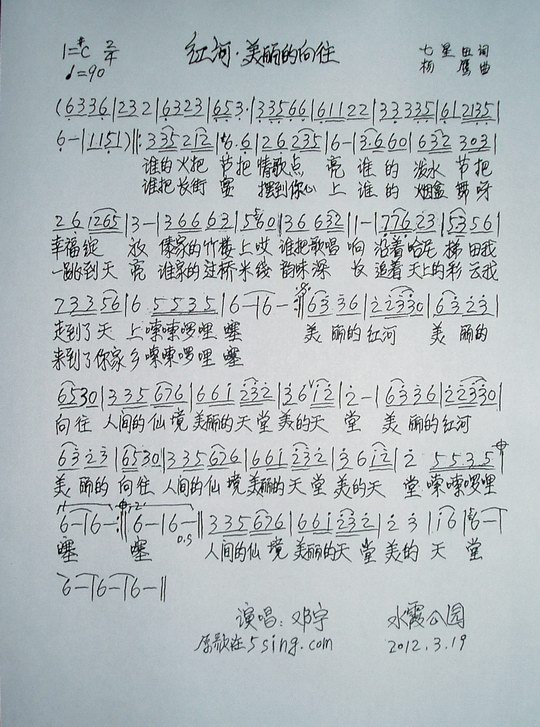 1=#C 2/4 红河·美丽的向往 七星田 词
♩=90 杨鹰 曲
(6 3 3 6 | 2 3 2 | 6 3 2 3 | 6 5 3· | 3 3 5 6 6 | 6 1 1 2 2 | 3 3 3 3 5 | 6 1 2 1 3 5 |
6 - | 1 1 5 1) ‖: 3 3 5 2 1 2 | 6· 6 | 2 6 2 3 5 | 6 - | 3· 6 6 0 | 6 3 2 3 0 3 |
谁的火把 节把 情歌点 亮 谁的 泼水 节把
谁把长街 宴 摆到你心 上 谁的 烟盒 舞 呀
2 6 1 2 6 5 | 3 - | 3 6 6 6 3 | 5 6 0 | 3 6 6 3 2 | 1 - | 7 7 6 2 3 | 5 3 5 6 |
幸福绽 放 傣家的竹楼上哎 谁把歌唱 响 沿着哈尼 梯田我
一跳到天 亮 谁家的过桥米线 韵味深 长 追着天上的彩 云我
7 3 3 5 6 | 6 5 5 3 5 | 6 - | 6 - :‖ 6 3 3 6 | 2 2 3 3 0 | 6 3 2 3 |
走到了天 上嗦嗦啰哩 噻 美 丽的红河 美 丽的
来到了你家乡嗦嗦啰哩 噻
6 5 3 0 | 3 3 5 6 7 6 | 6 6 1 2 3 2 | 3 6 1 2 | 2 - | 6 3 3 6 | 2 2 3 3 0 |
向往 人间的仙境 美丽的天堂 美的天 堂 美 丽的红河
6 3 2 3 | 6 5 3 0 | 3 3 5 6 7 6 | 6 6 1 2 3 2 | 3 6 1 2 | 2 5 5 3 5 |
美 丽的 向往 人间的仙 境 美丽的天 堂 美的天 堂 嗦嗦啰哩
6 - | 6 - :‖ 6 - | 6 - ‖ 3 3 5 6 7 6 | 6 6 1 2 3 2 | 2 3 | 1 6 | 6 - |
噻 噻 D.S 人间的仙 境 美丽的天 堂 美的 天 堂
6 - | 6 - | 6 - ‖
演唱：邓宇 水霞公园
原歌在5sing.com 2012.3.19